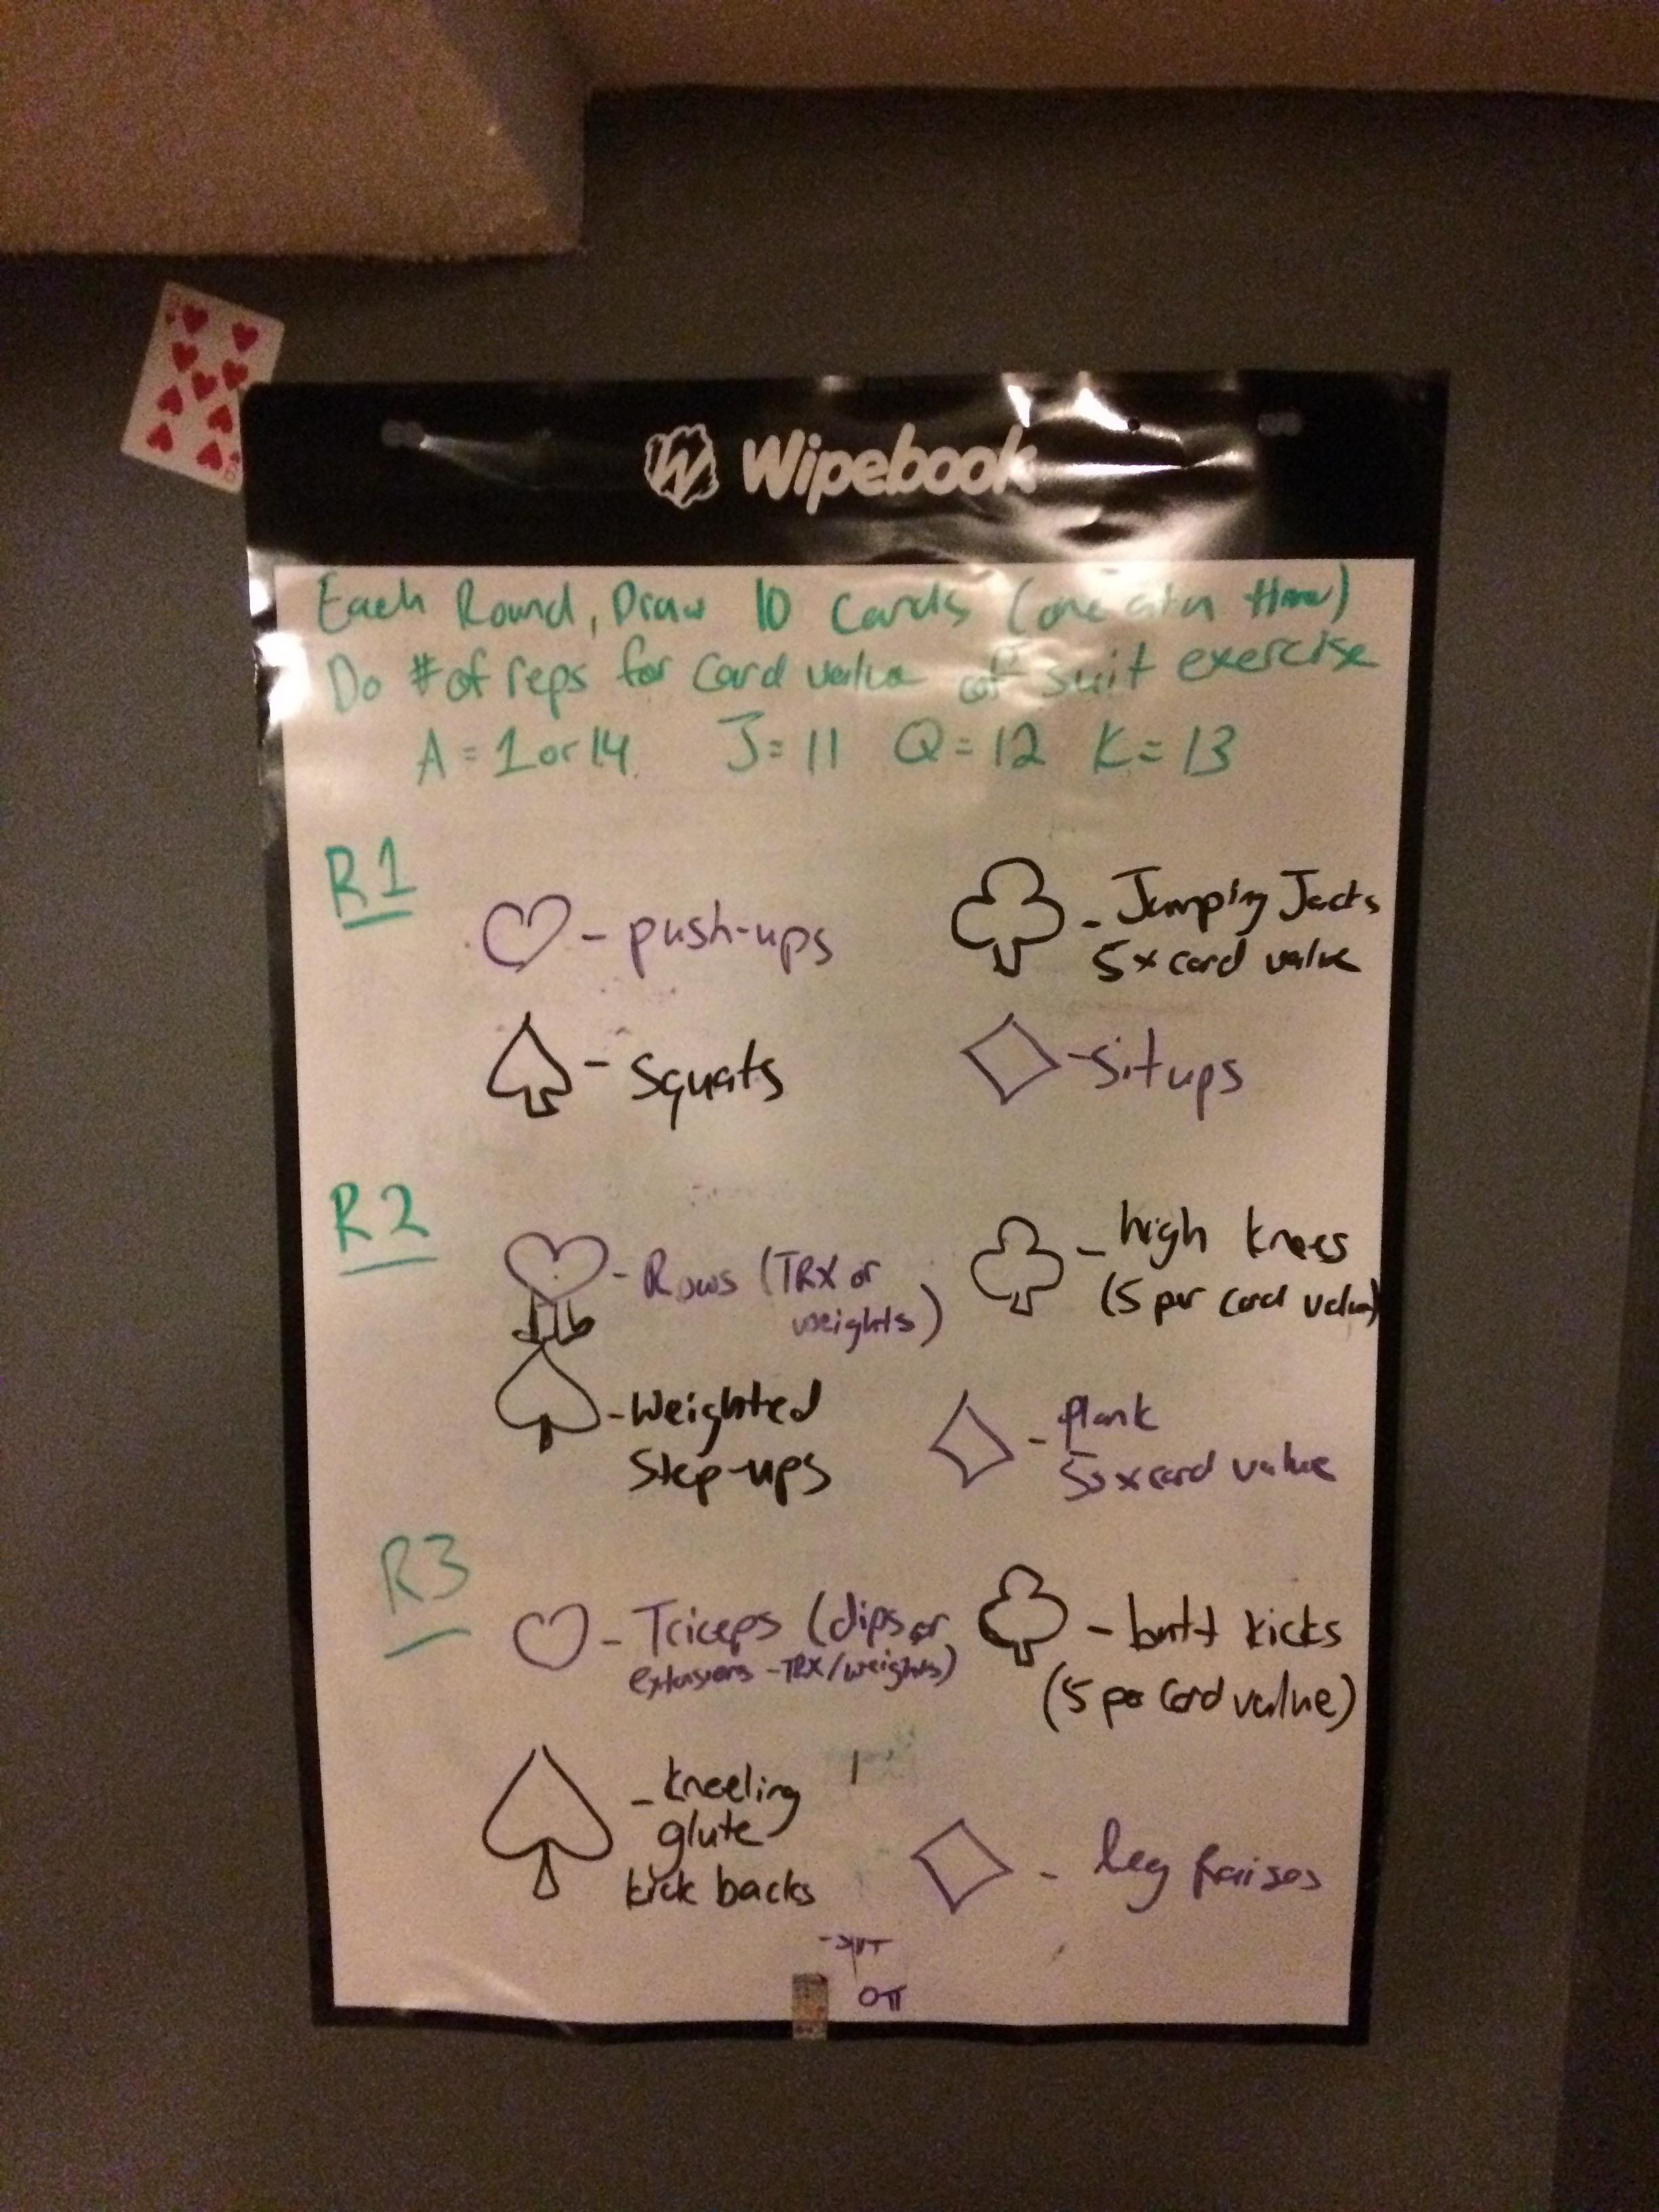 Wipebook
Each Round, Draw 10 Cards (one at a time)
Do # of reps for card value of suit exercise
A = 1 or 14 J = 11 Q = 12 K = 13
R1
- push-ups
- Jumping Jacks
5 x card value
- Squats
- Situps
R2
- Rows (TRX or
weights)
- high knees
(5 per card value)
- Weighted
Step-ups
- plank
5s x card value
R3
- Triceps (dips or
extensions - TRX/weights)
- butt kicks
(5 per card value)
- kneeling
glute
kick backs
- leg raises